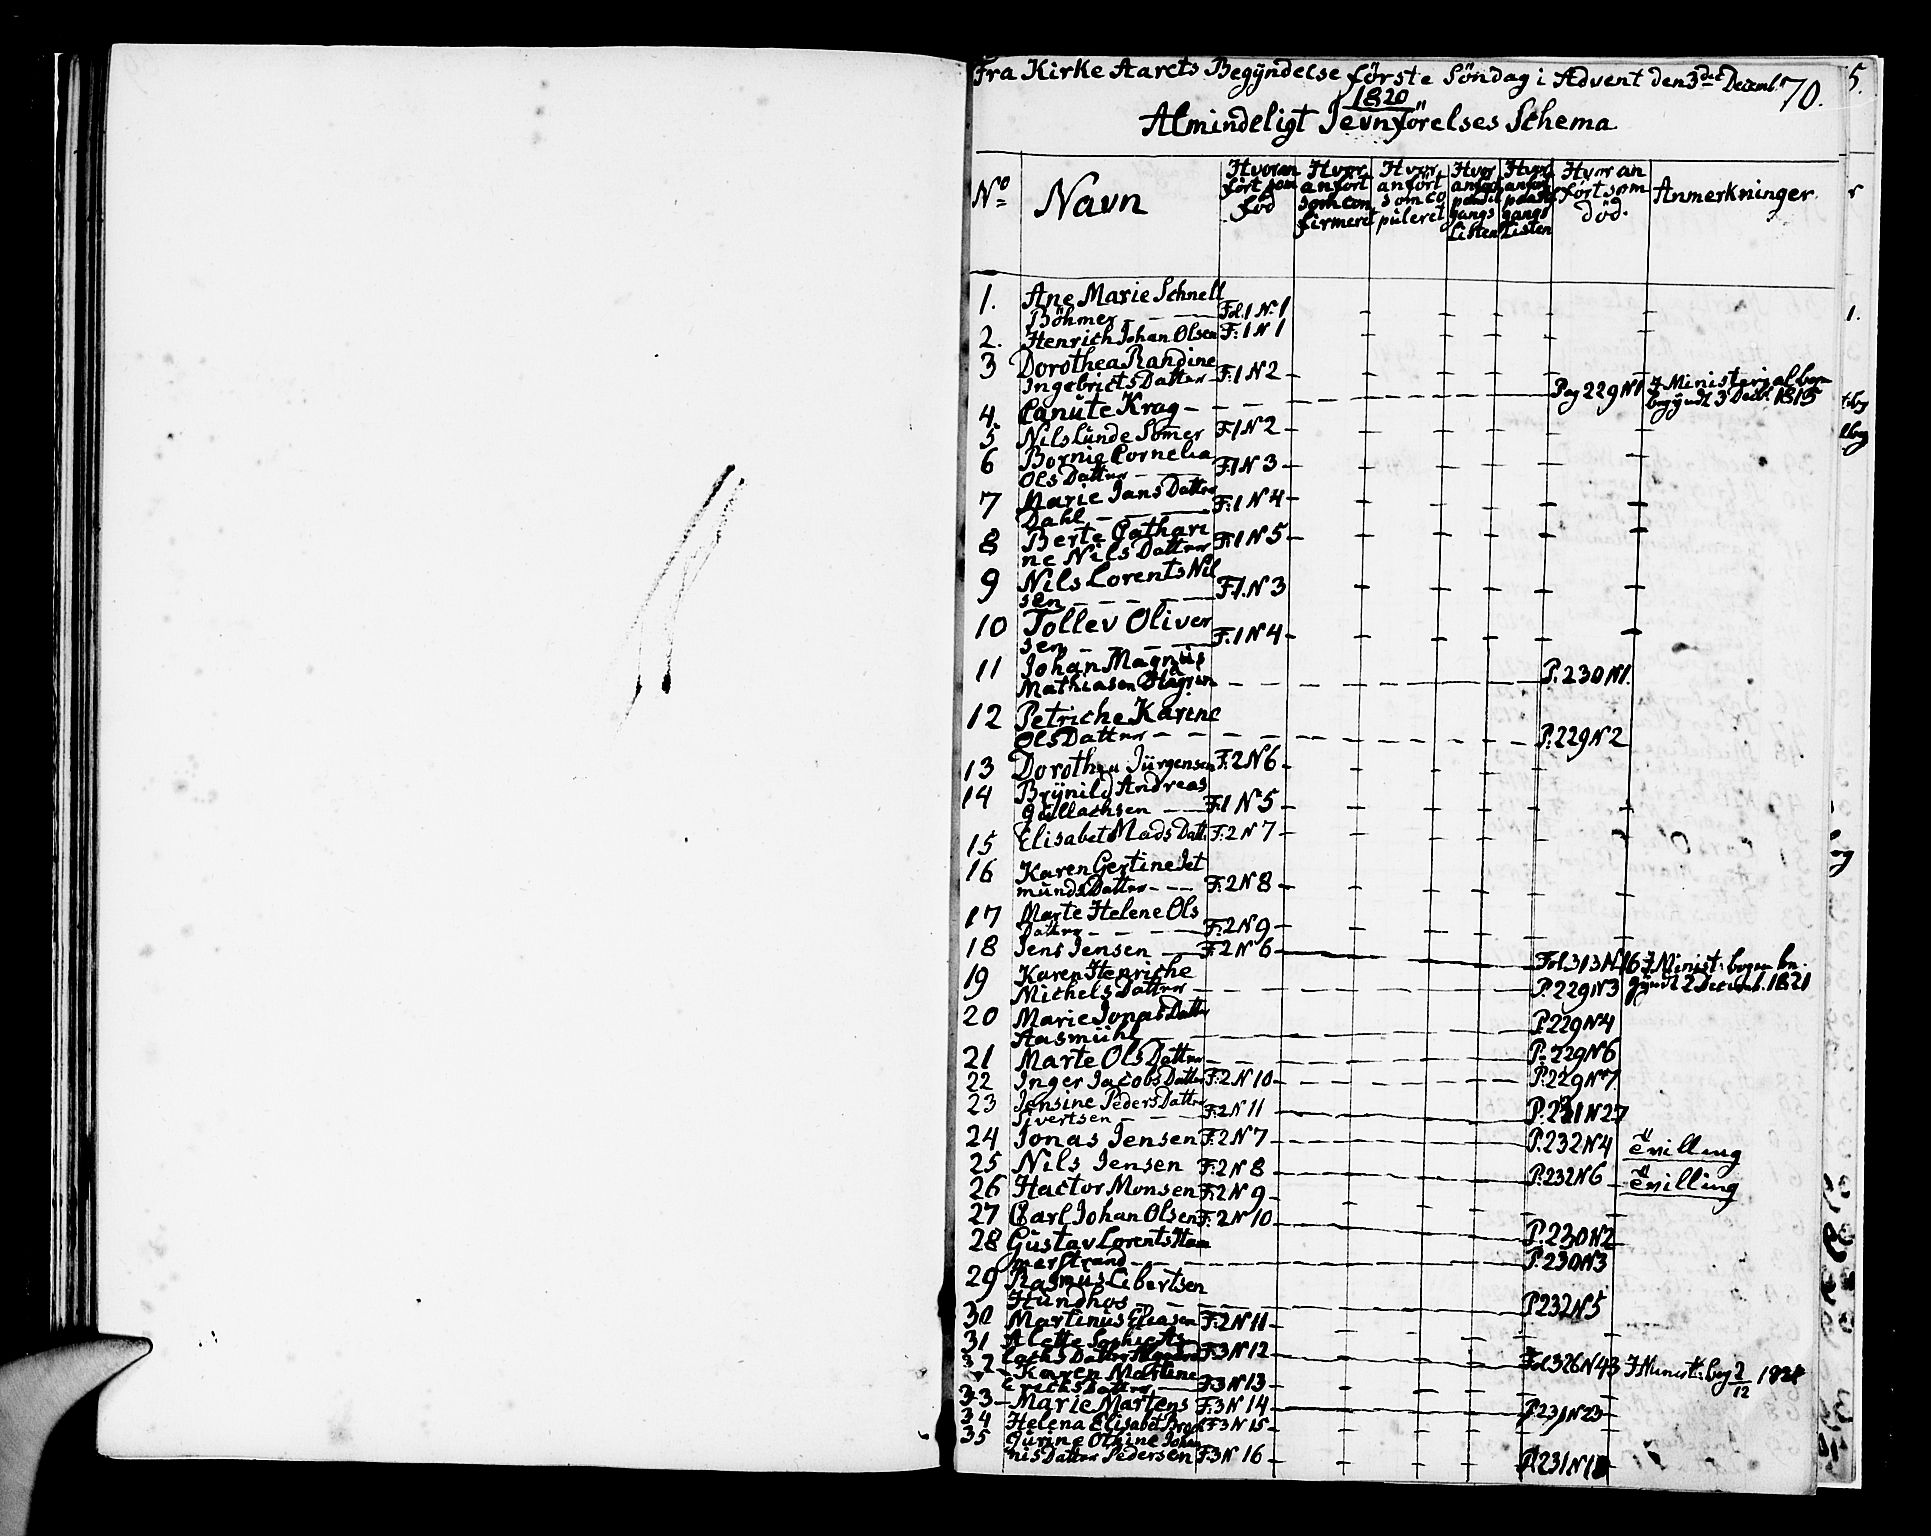 Fra Kirke Aarets Begÿndelse förste Söndag i Advent den 3die Decembr 70.
1820
Almindeligt Jevnförelses Schema
No Navn Hvor an fört som föd Hvor anfört som con firmeret Hvor anfört som co puleret Hvor anfört Listen Hvor anfört gangs Listen Hvor an fört som död. Anmerkninger.
1. Ane Marie Schnell
Böhmer Fol. 1 N. 1
2. Henrich Johan Olsen F: 1 N 1
3 Dorothea Randine
Ingebricts Datter F: 1 N 2
4. Canute Krag Pag 229 N 1 J Ministerialbog begÿndt 3 Decb. 1815
5 Nils Lunde Sömer F 1 N 2
6 Bornie Cornelia
Ols Datter F: 1 N 3
7 Marie Jans Datter
Dahl F: 1 N 4
8 Berte Cathari
ne Nils Datter F: 1 N 5
9 Nils Lorents Nil
sen F. 1. N 3
10 Tollev Oliver
sen F. 1 N 4
11 Johan Magnus
Mathiasen P. 230 N 1.
12 Petriche Karene
Ols Datter P: 229 N 2
13 Dorothea Jürgensen F: 2 N 6
14 Brÿnild Andreas
Gullachsen F. 1 N 5
15 Elisabet Mads Datt F: 2 N 7
16 Karen Gertine Jet
munds Datter F. 2 N 8
17 Marte Helene Ols
Datter F: 2 N 9
18 Jens Jensen F: 2 N 6 Fol. 313 N. 16 J Minist: bogen be
19 Karen Henriche
Michels Datter P. 229 N 3 gÿndt 2 Decemb. 1821
20 Marie Jonas Datter
Aasmühl P 229 N 4
21 Marte Ols Datter P. 229 N 6
22 Inger Jacobs Datter F: 2 N 10 P: 229 N 7
23 Jensine Peders Datter
Sivertsen F: 2 N 11 P. 231 N 27
24 Jonas Jensen F: 2 N 7 P. 232 N 4 Tvilling
25 Nils Jensen F: 2 N 8 P. 232 N 6 Tvilling
26 Hactor Monsen F: 2 N 9
27 Carl Johan Olsen F: 2 N 10 P. 230 N 2
28 Gustav Lorents Ham
merstrand P. 230 N 3
29 Rasmus Libertsen
Hundhos P 232 N 5
30 Martinus Eliasen F: 2 N 11
31 Alette Sophie As
lachs Datter F. 3 N 12 Fol. 326 N 43 J Minist: beg 2/12 1821
32 Karen Martine
Ericks Datter F 3 N 13
33 Marie Martens F. 3 N 14 P 231 N 23
34 Helena Elisabet F 3 N 15
35 Gurine Othine Johan
nis Datter Pedersen F. 3 N 16 P. 231 N 18